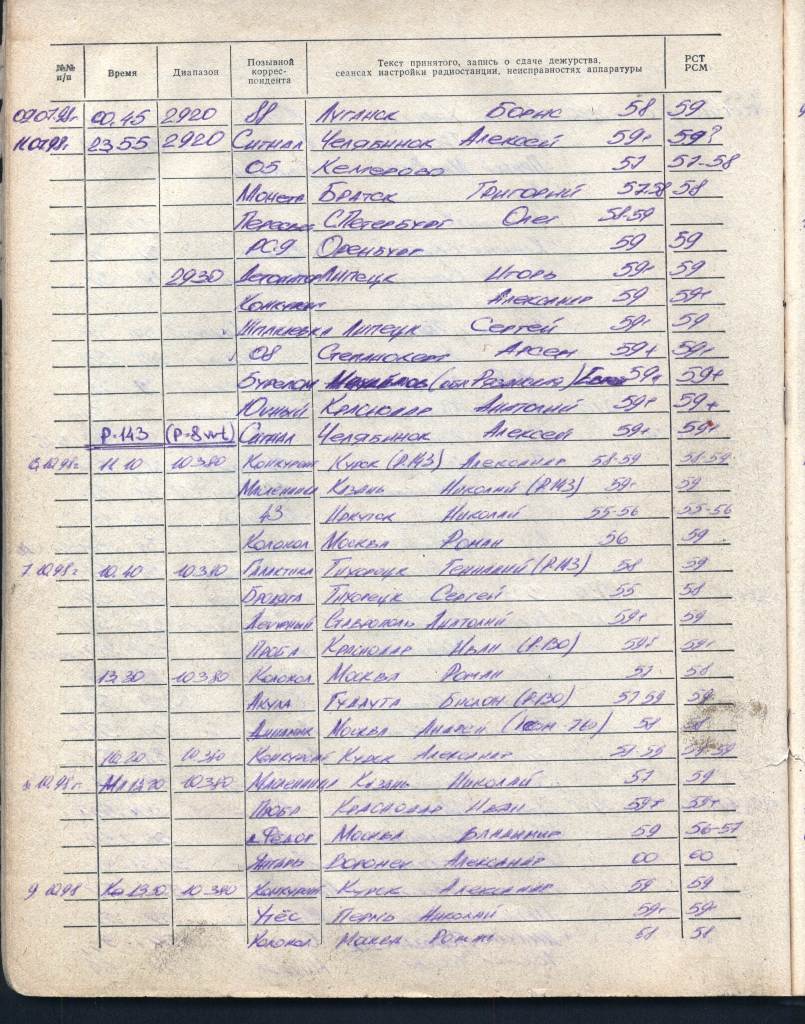 №№ п/п Время Диапазон Позывной коррес- пондента Текст принятого, запись о сдаче дежурства, сеансах настройки радиостанции, неисправностях аппаратуры РСТ РСМ
09.07.98г 00.45 2920 88 Луганск Борис 58 59
11.07.98г 23.55 2920 Сигнал Челябинск Алексей 59+ 59?
05 Кемерово 57 57-58
Монета Братск Григорий 57.58 58
С.Петербург Олег 58-59
РС-9 Оренбург 59 59
2930 Липецк Игорь 59+ 59
Конкурент Александр 59 59+
Липецк Сергей 59+ 59
08 Степанокерт Арсен 59+ 59+
Бурелом 59+ 59+
Южный Краснодар Анатолий 59+ 59+
Р-143 (Р-8wt) Сигнал Челябинск Алексей 59+ 59+
10.98г 11.10 10380 Конкурент Курск (Р.143) Александр 58-59 58-59
Масленица Казань Николай (Р.143) 59+ 59
43 Иркутск Николай 55-56 55-56
Колокол Москва Роман 56 59
7.10.98г 10.40 10380 Галактика Тихорецк Геннадий (Р.143) 58 59
Бродяга Тихорецк Сергей 55 58
Ставрополь Анатолий 59+ 59
Проба Краснодар Иван (Р.130) 59+ 59+
13.30 10380 Колокол Москва Роман 57 58
Акула Гудаута Беслан (Р.130) 57-59 59
Динамик Москва Андрей 58 58
10380 Конкурент Курск Александр
10.98г 10.380 Масленица Казань Николай 57 59
Проба Краснодар Иван 59+ 59+
Федор Москва Владимир 59 56-57
Янтарь Воронеж Александр 00 00
9.10.98 13.30 10.380 Конкурент Курск Александр 59 59
Утёс Пермь Николай 59+ 59+
Колокол Москва Роман 58 58